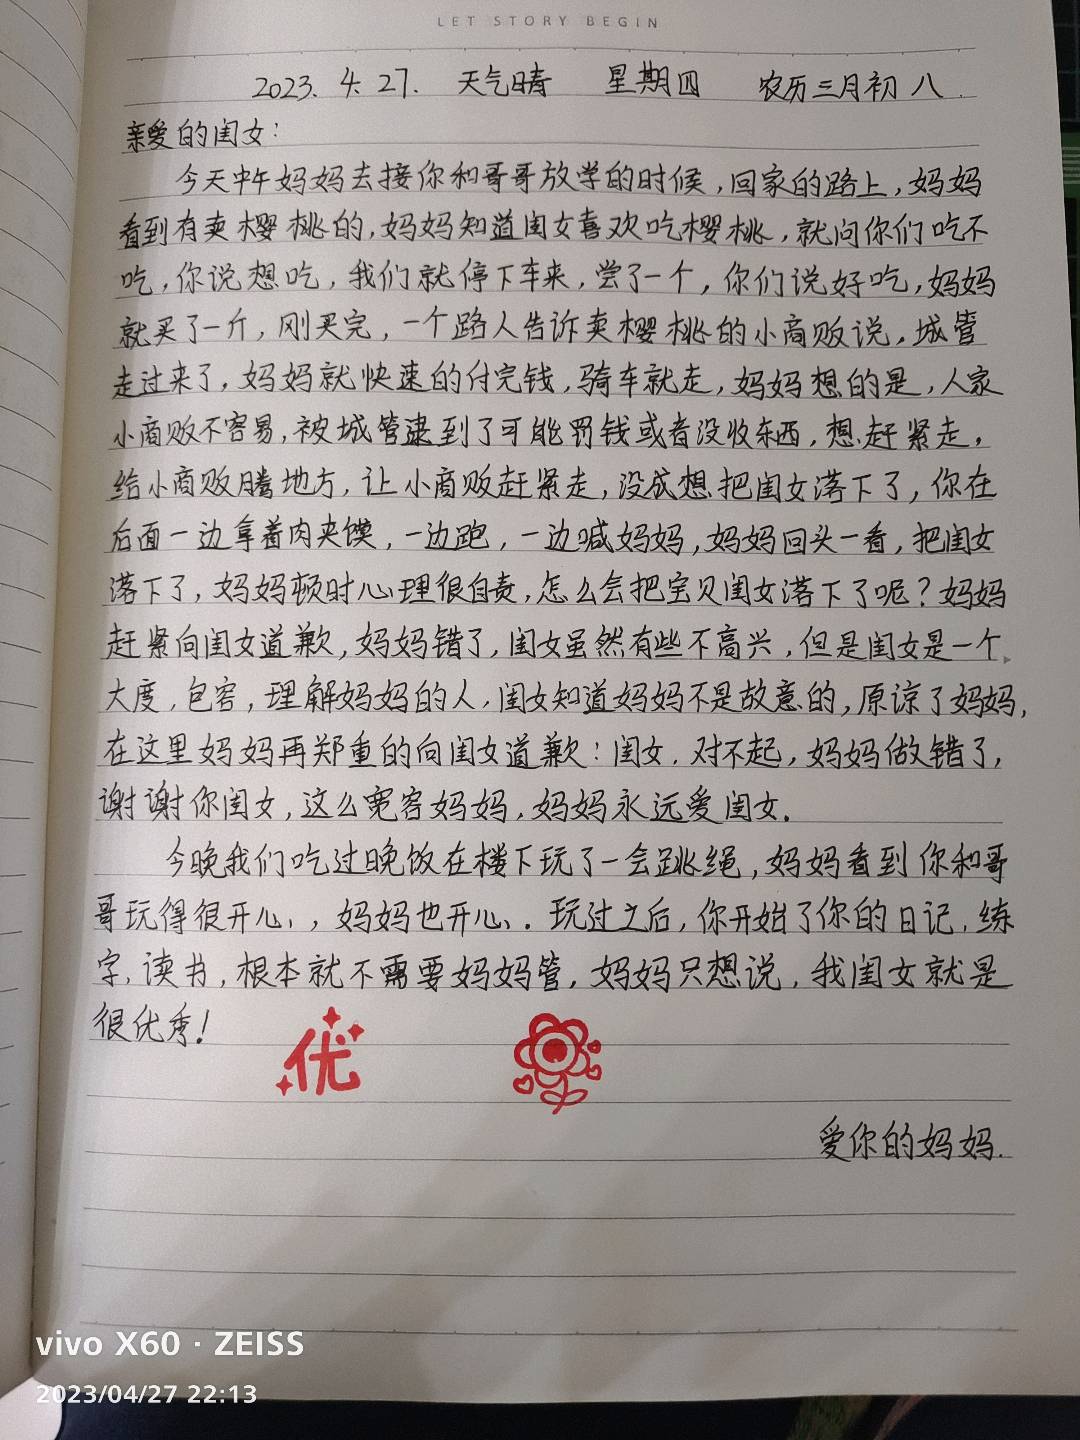 LET STORY BEGIN
2023. 4. 27. 天气晴 星期四 农历三月初八.
亲爱的闺女:
今天中午妈妈去接你和哥哥放学的时候,回家的路上,妈妈
看到有卖樱桃的,妈妈知道闺女喜欢吃樱桃,就问你们吃不
吃,你说想吃,我们就停下车来,尝了一个,你们说好吃,妈妈
就买了一斤,刚买完,一个路人告诉卖樱桃的小商败说,城管
走过来了,妈妈就快速的付完钱,骑车就走,妈妈想的是,人家
小商败不容易,被城管逮到了可能罚钱或者没收东西,想赶紧走,
给小商败腾地方,让小商败赶紧走,没成想把闺女落下了,你在
后面一边拿着肉夹馍,一边跑,一边喊妈妈,妈妈回头一看,把闺女
落下了,妈妈顿时心理很自责,怎么会把宝贝闺女落下了呢?妈妈
赶紧向闺女道歉,妈妈错了,闺女虽然有些不高兴,但是闺女是一个
大度,包容,理解妈妈的人,闺女知道妈妈不是故意的,原谅了妈妈,
在这里妈妈再郑重的向闺女道歉:闺女,对不起,妈妈做错了,
谢谢你闺女,这么宽容妈妈,妈妈永远爱闺女.
今晚我们吃过晚饭在楼下玩了一会跳绳,妈妈看到你和哥
哥玩得很开心,妈妈也开心.玩过之后,你开始了你的日记,练
字,读书,根本就不需要妈妈管,妈妈只想说,我闺女就是
很优秀!
优
爱你的妈妈.
vivo X60 · ZEISS
2023/04/27 22:13